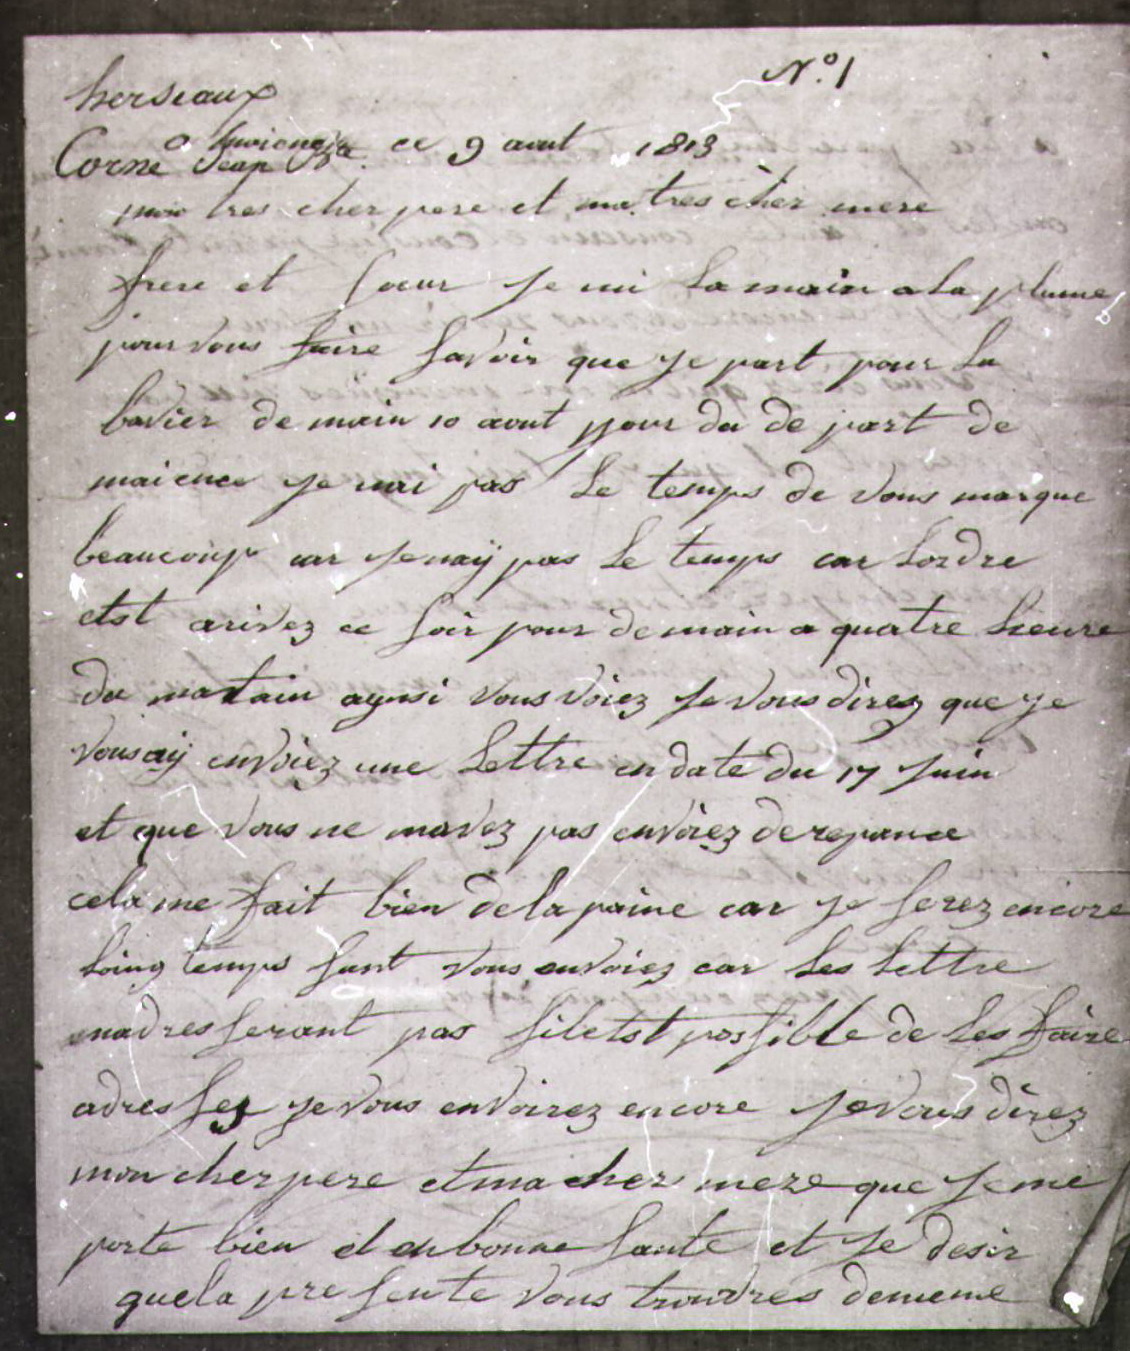 N.º 1
herseaux
a maience ce 9 aout 1813
Corne Jean Bte
mon tres cher pere et ma tres chèr mere
frere et soeur Je mi la main a la plume
pour vous faire savoir que je part pour la
bavier demain 10 aout jour du depart de
maience je nai pas le temps de vous marque
beaucoup car Je naÿ pas le temps car lordre
etst arivez ce soir pour demain a quatre heure
du matain aynsi vous voiez Je vous direz que je
vous aÿ envoiez une lettre en date du 17 Juin
et que vous ne mavez pas envoiez de repance
cela me fait bien de la paine car je serez encore
loing temps sant vous envoiez car les lettre
madresserant pas sil etst possible de les faire
adressez je vous envoirez encore Je vous direz
mon cher pere et ma cher mere que Je me
porte bien et en bonne sante et Je desir
que la presente vous trouvres de meme